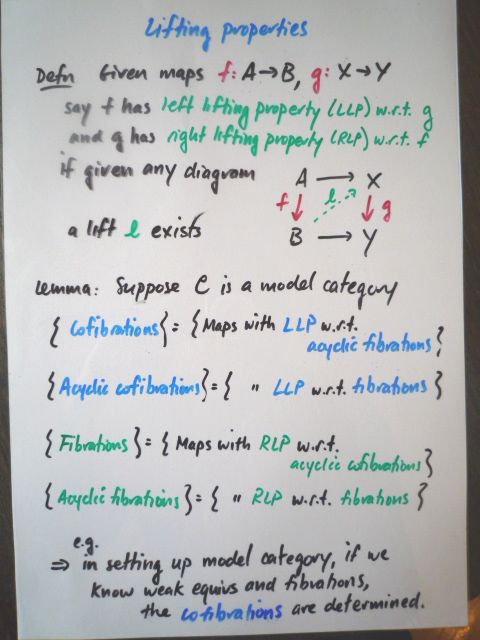 Lifting properties
Defn Given maps f: A→B, g: X→Y
say f has left lifting property (LLP) w.r.t. g
and g has right lifting property (RLP) w.r.t. f
if given any diagram
A → X
f ↓ l ↓ g
a lift l exists
B → Y
Lemma: Suppose C is a model category
{Cofibrations} = {Maps with LLP w.r.t.
acyclic fibrations}
{Acyclic cofibrations} = { " LLP w.r.t. fibrations}
{Fibrations} = {Maps with RLP w.r.t.
acyclic cofibrations}
{Acyclic fibrations} = { " RLP w.r.t. fibrations}
e.g.
⇒ in setting up model category, if we
know weak equivs and fibrations,
the cofibrations are determined.